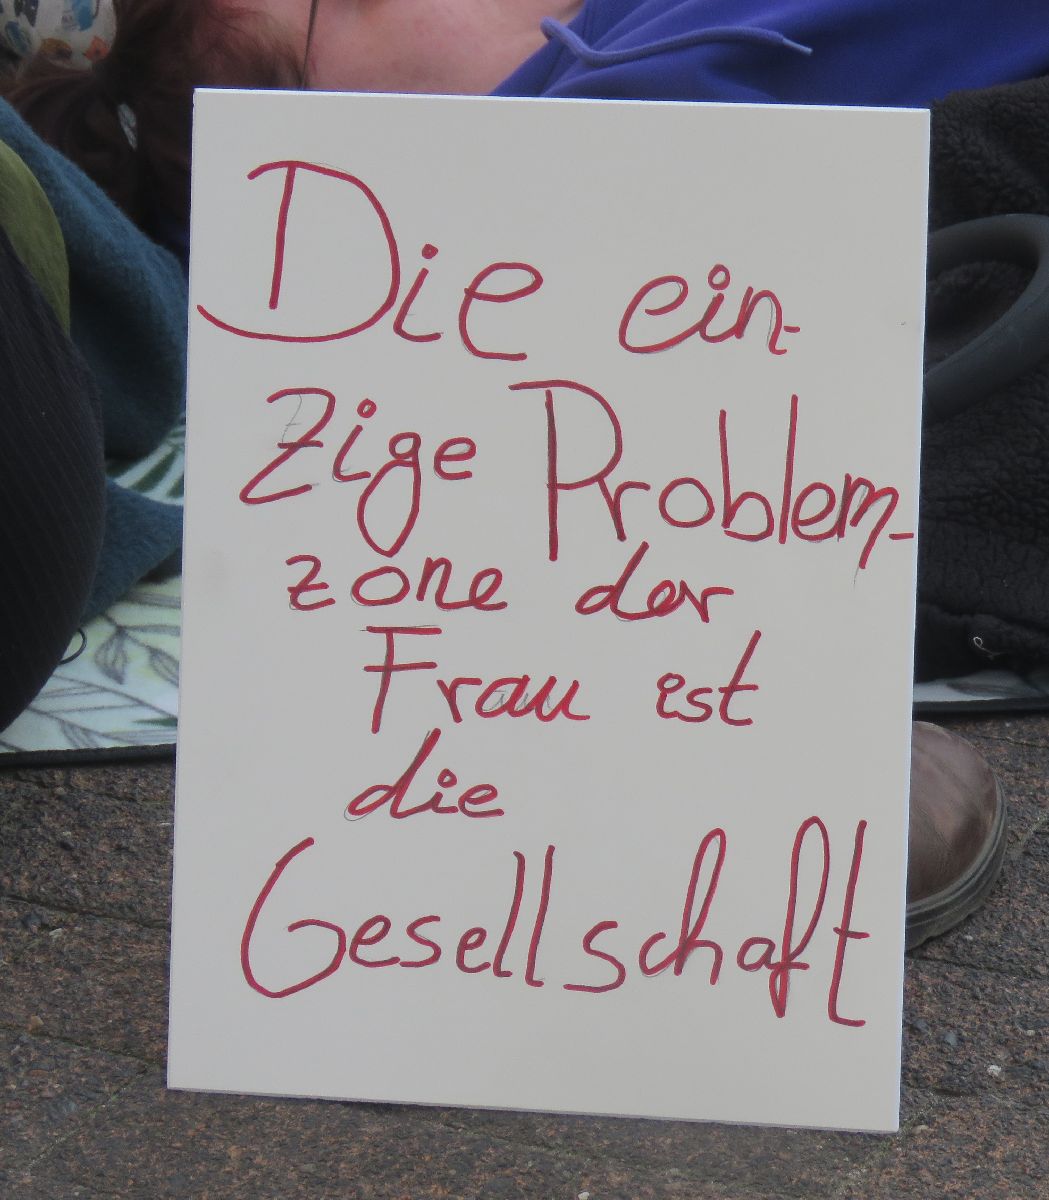 Die ein-
zige Problem-
zone der
Frau ist
die
Gesellschaft